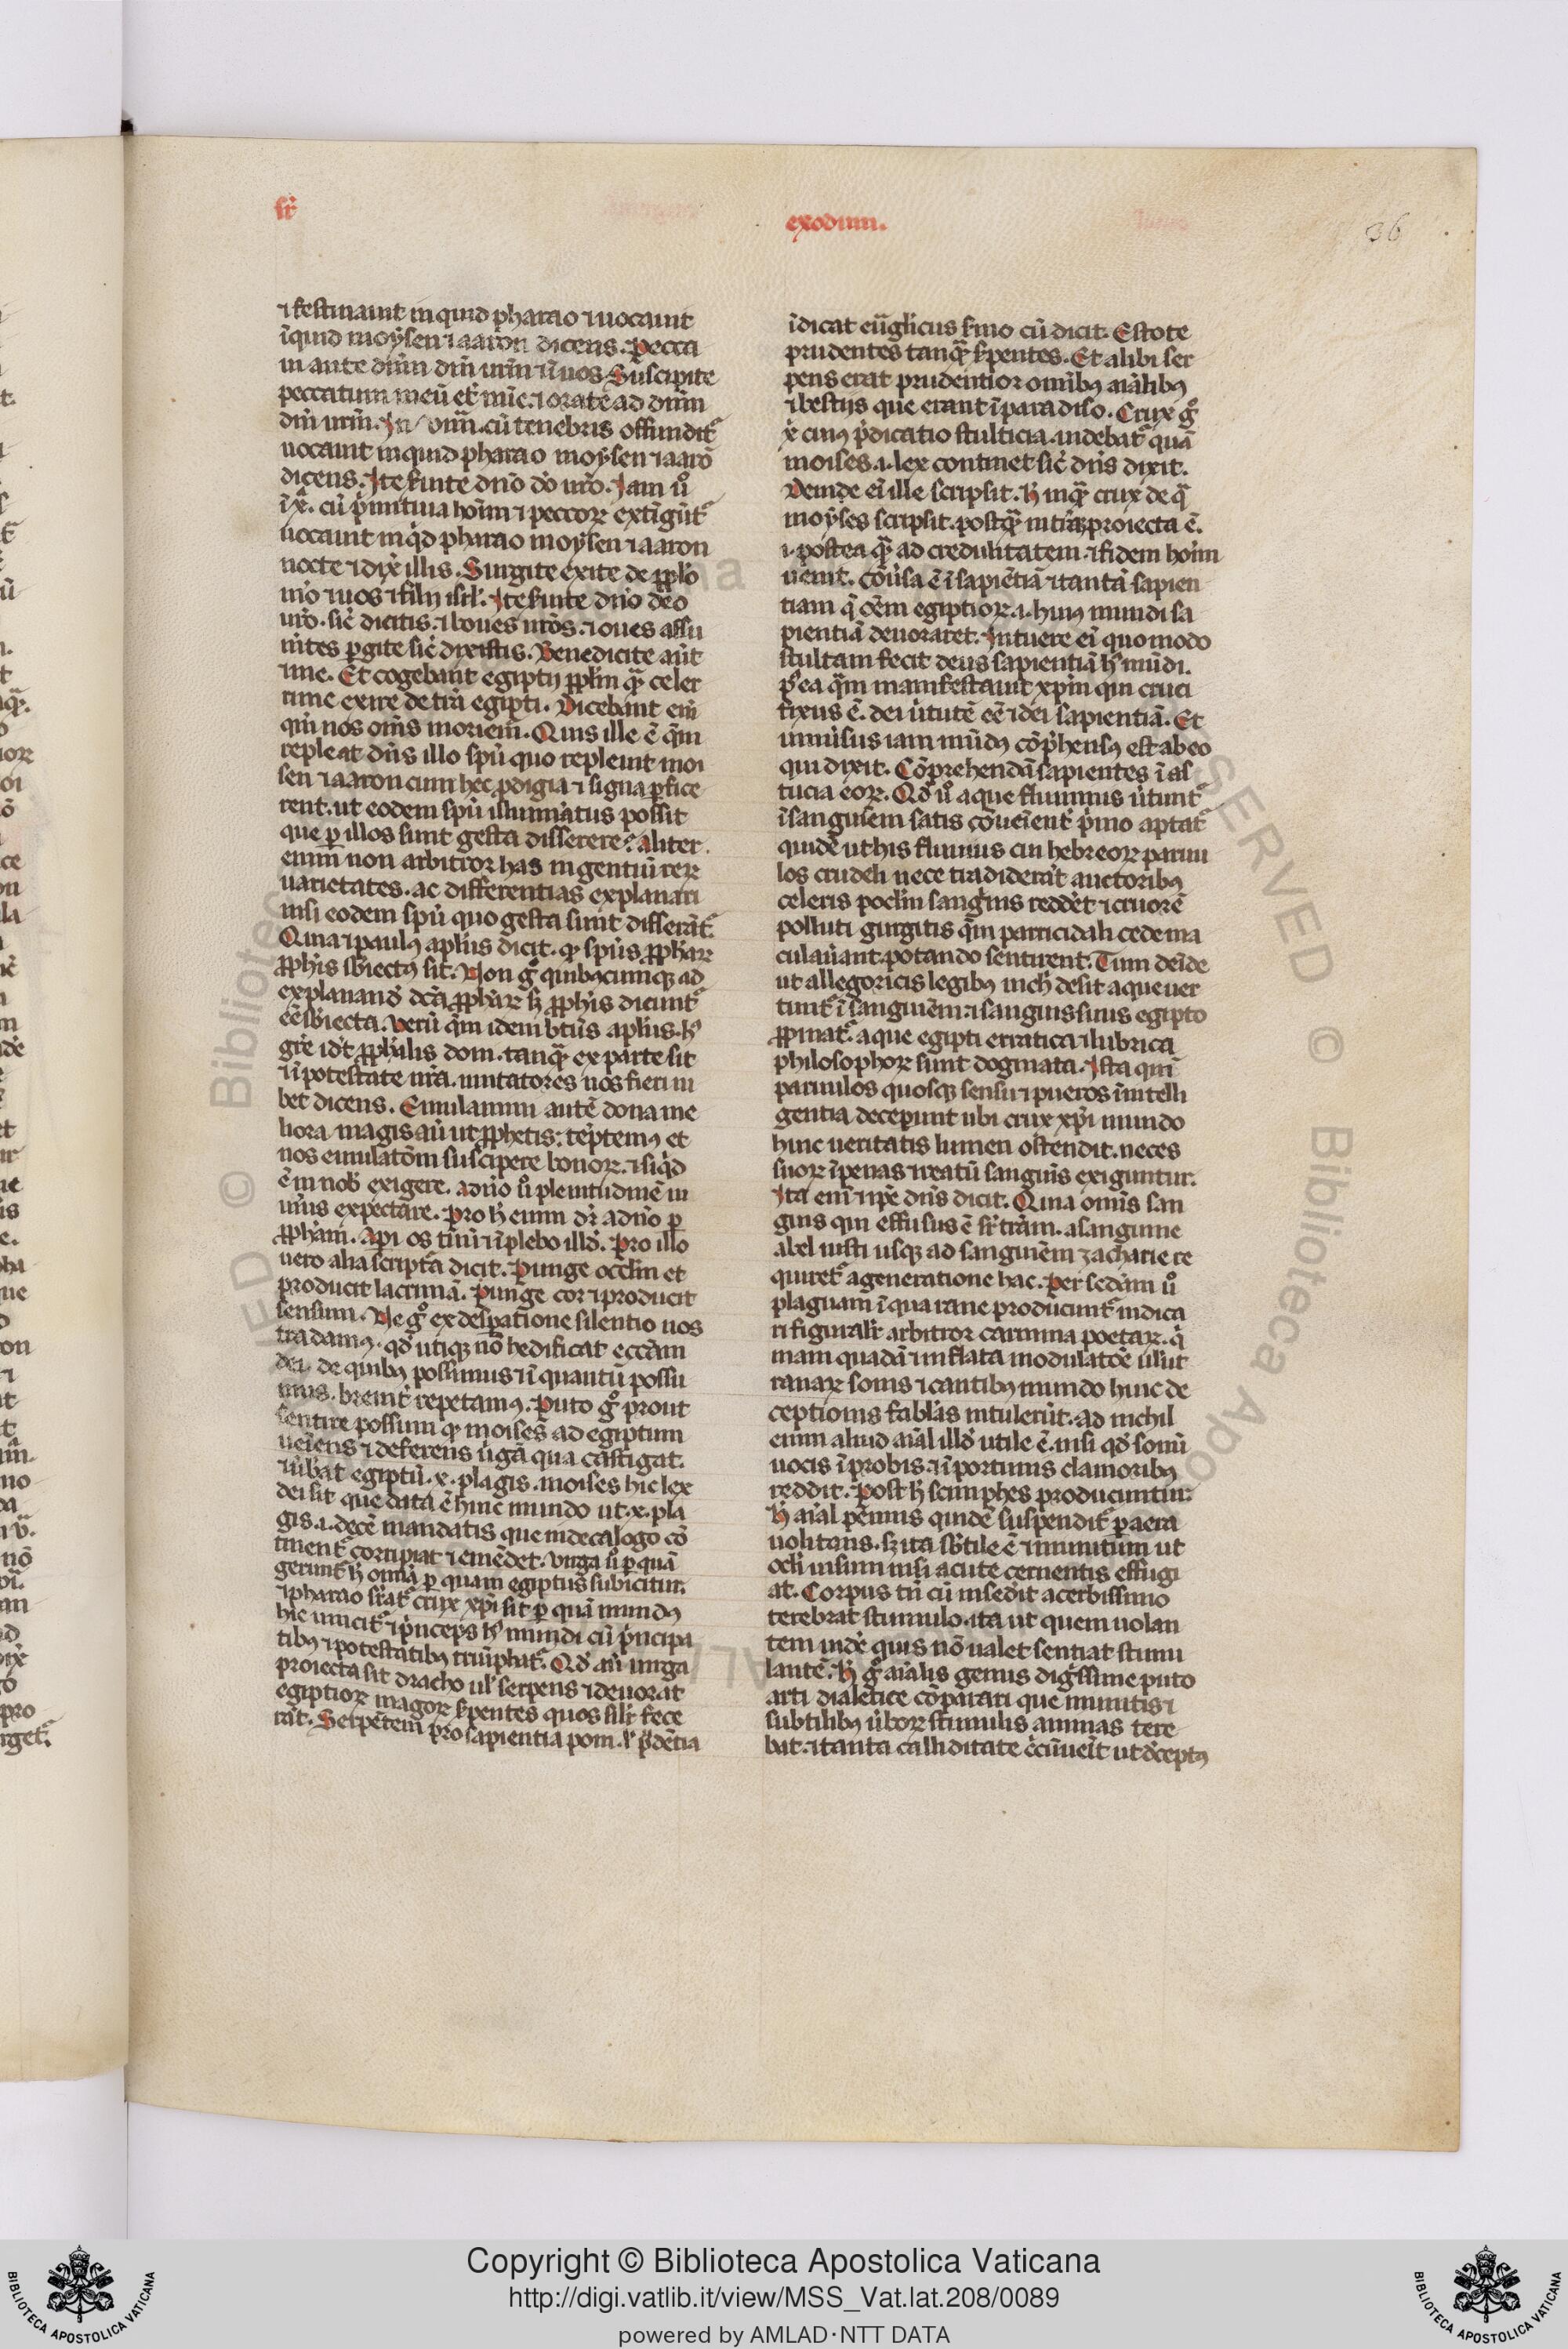 sr̄
exodum.
36
⁊ festinauit inquid pharao ⁊ uocauit
īquid moẏsen ⁊ aaron dicens. Pecca
ui ante dn̄m dm̄ ur̄m ⁊ ī uos. Suscipite
peccatum meū et nūc. ⁊ orate ad dn̄m
dm̄ ur̄m. cū tenebris offundit᷑
uocauit inquid pharao moẏsen ⁊ aarō
dicens. Ite seruite dn̄o do ur̄o. Iam u͛o
cū p̄mitiua hoīm ⁊ peccoꝝ extīgūt᷑
uocauit inq̇d pharao moẏsen ⁊ aaron
nocte ⁊ dix̄ illis. Surgite exite de ppl̄o
m̄o ⁊ uos ⁊ filij isrl̄. Ite seruite dn̄o deo
ur̄o. sic̄ dicitis. ⁊ boues ur̄os. ⁊ oues assu
m̄tes ꝑgite sic̄ dixistis. Benedicite aūt
⁊ me. Et cogebant egiptij ppl̄m celer
rime exire de tr̄a egipti. Dicebant eni
qm̄ nos om̄s moriem̄. Quis ille ē q̄m
repleat dn̄s illo spū quo repleuit moi
sen ⁊ aaron cum hec ꝓdigia ⁊ signa ꝑfice
rent. ut eodem spū illuminatus possit
que ꝑ illos sunt gesta disserere? Aliter
enim non arbitror has ingentiū reꝝ
uarietates. ac differentias explanari
nisi eodem spū quo gesta sunt disserāt᷑.
Quia ⁊ paulꝰ apl̄us dicit. ꝙ spūs ꝓphaꝝ
ꝓphīs sb̄iectꝰ sit. Non g͛ quibꝰcumqꝫ ad
explanand̄ dcā ꝓphaꝝ sꝫ ꝓphīs dicunt᷑
eē sb̄iecta. Verū q̄m idem bt̄us apl̄us. hꝰ
gr̄e ꝓph̄alis dom. tanqͣ ex parte sit
⁊ ī potestate nr̄a. imitatores nos fieri iu
bet dicens. Emulamini autē dona me
liora magis aū ut ꝓphetis. tēptemꝰ et
nos emulatōm suscipere bonoꝝ. ⁊ siq̇d
ē in nob̄ exigere. a dn̄o u͛ plenitudinē m
un̄is expectare. Pro h̄ enim dr̄ a dn̄o ꝑ
ꝓpham. Aꝑi os tuū ⁊ īplebo illd̄. Pro illo
uero alia scriptā dicit. Punge occl̄m et
producit lacrimā. Punge cor ⁊ producit
sensum. Ne g͛ ex desꝑatione silentio uos
tradamꝰ. qd̄ utiqꝫ nō hedificat ecclam
dei. de quibꝰ possimus ⁊ ī quantū possu
mus. breuit̄ repetamꝰ. Puto g͛ prout
sentire possum ꝙ moises ad egiptum
ueīens ⁊ deferens ūgā qua castigat.
⁊ ūbat egiptū. x. plagis. moises hic lex
dei sit que data ē huic mundo ut. x. pla
gis. i. decē mandatis que in decalogo cō
tinent᷑ corripiat ⁊ emēdet. Virga u͛ ꝑ quā
gerunt᷑ h̄ omīa ꝑ quam egiptus subicitur.
⁊ pharao sr̄at᷑ crux xp̄i sit ꝑ quā mundꝰ
hic uincit᷑ ⁊ p̄nceps hꝰ mundi cū p̄ncipa
tibꝰ ⁊ potestatibꝰ truīphat᷑. Qd̄ aū uirga
proiecta sit dracho ul̄ serpens ⁊ deuorat
egiptioꝝ magoꝝ ẛpentes quos sil̄r fece
rāt. Serpētem pro sapientia poni. ul̄ p̄dētia
īdicat euāglicus ẛmo cū dicit. Estote
prudentes tanqͣ ẛpentes. Et alibi ser
pens erat prudentior omībꝰ aīalibꝰ
⁊ bestijs que erant ī paradiso. Crux g͛
xp̄ cuiꝰ p̄dicatio stulticia. uidebat᷑ quā
moises. i. lex continet sic̄ dn̄s dixit.
Deinde eī ille scripsit. H̄ inqͣ crux de qͣ
moẏses scripsit. postqͣ in tr̄am proiecta ē.
i. postea qͣ ad credulitatem. ⁊ fidem hoīm
uenit. cōuersa ē ī sapiētiā ⁊ tantā sapien
tiam q̄ oēm egiptioꝝ. i. huiꝰ mundi sa
pientiā deuoraret. Intuere eī quomodo
stultam fecit deus sapientiā hꝰ mūdi.
pꝰea q̄m manifestauit xpm̄ qui cruci
fixus ē. dei ūtutē eē ⁊ dei sapientiā. Et
uniūsus iam mūdꝰ cōp̄hensꝰ est ab eo
qui dixit. Cōprehendā sapientes ī as
tucia eoꝝ. Qd̄ u͛ aque fluminis ūtunt᷑
ī sanguīem satis cōueīent᷑ p̄mo aptat᷑
quidē ut his fluuius cui hebreoꝝ paruu
los crudeli nece tradiderāt auctoribꝰ
celeris pocl̄m sanguīnis redderet ⁊ cruorē
polluti gurgitis q̄m parricidali cede ma
culauerant. potando sentirent. Tum deīde
ut allegoricis legibꝰ nich̄ desit aque uer
tunt᷑ ī sanguīem. ⁊ sanguis suus egipto
ꝓpinat᷑. aque egipti erratica ⁊ lubrica
philosophoꝝ sunt dogmata. Ista qm̄
paruulos quosqꝫ sensu ⁊ pueros ītelli
gentia deceperunt ubi crux xp̄i mundo
huic ueritatis lumen ostendit. neces
suoꝝ ī penas ⁊ reatū sanguīs exiguntur.
Ita enī ⁊ ip̄e dn̄s dicit. Quia omīs san
guis qui effusus ē sr̄ terram. a sanguine
abel iusti usqꝫ ad sanguīem zacharie re
quiret᷑ a generatione hac. Per secd̄am u͛
plaguam ī qua rane producunt᷑ indica
ri figuralit̄ arbitror carmina poetaꝝ. q̇
inani quadā ⁊ inflata modulatōe uelut
ranaꝝ sonis ⁊ cantibꝰ mundo huic de
ceptionis fabl̄as intulerūt. ad nichil
enim aliud aīal illd̄ utile ē. nisi qd̄ sonū
uocis īprobis. ⁊ īportunis clamoribꝰ
reddit. Post h̄ sciniphes producuntur.
H̄ aīal pēnnis quidē suspendit᷑ ꝑ aera
uolitans. sꝫ ita sb̄tile ē ⁊ minutum ut
ocl̄i uisum nisi acute cernentis effugi
at. Corpus tn̄ cū insederit acerbissimo
terebrat stimulo. ita ut quem uolan
tem uidere quis nō ualet sentiat stimu
lantē. H̄ g͛ aīalis genus digͥssime puto
arti dialetice cōparari que minutis ⁊
subtilibꝰ ūboꝝ stimulis animas tere
bat. ⁊ tanta calliditate c̄cūuēit ut dc̄eptꝰ
Copyright © Biblioteca Apostolica Vaticana
http://digi.vatlib.it/view/MSS_Vat.lat.208/0089
powered by AMLAD·NTT DATA
BIBLIOTECA APOSTOLICA VATICANA
BIBLIOTECA APOSTOLICA VATICANA